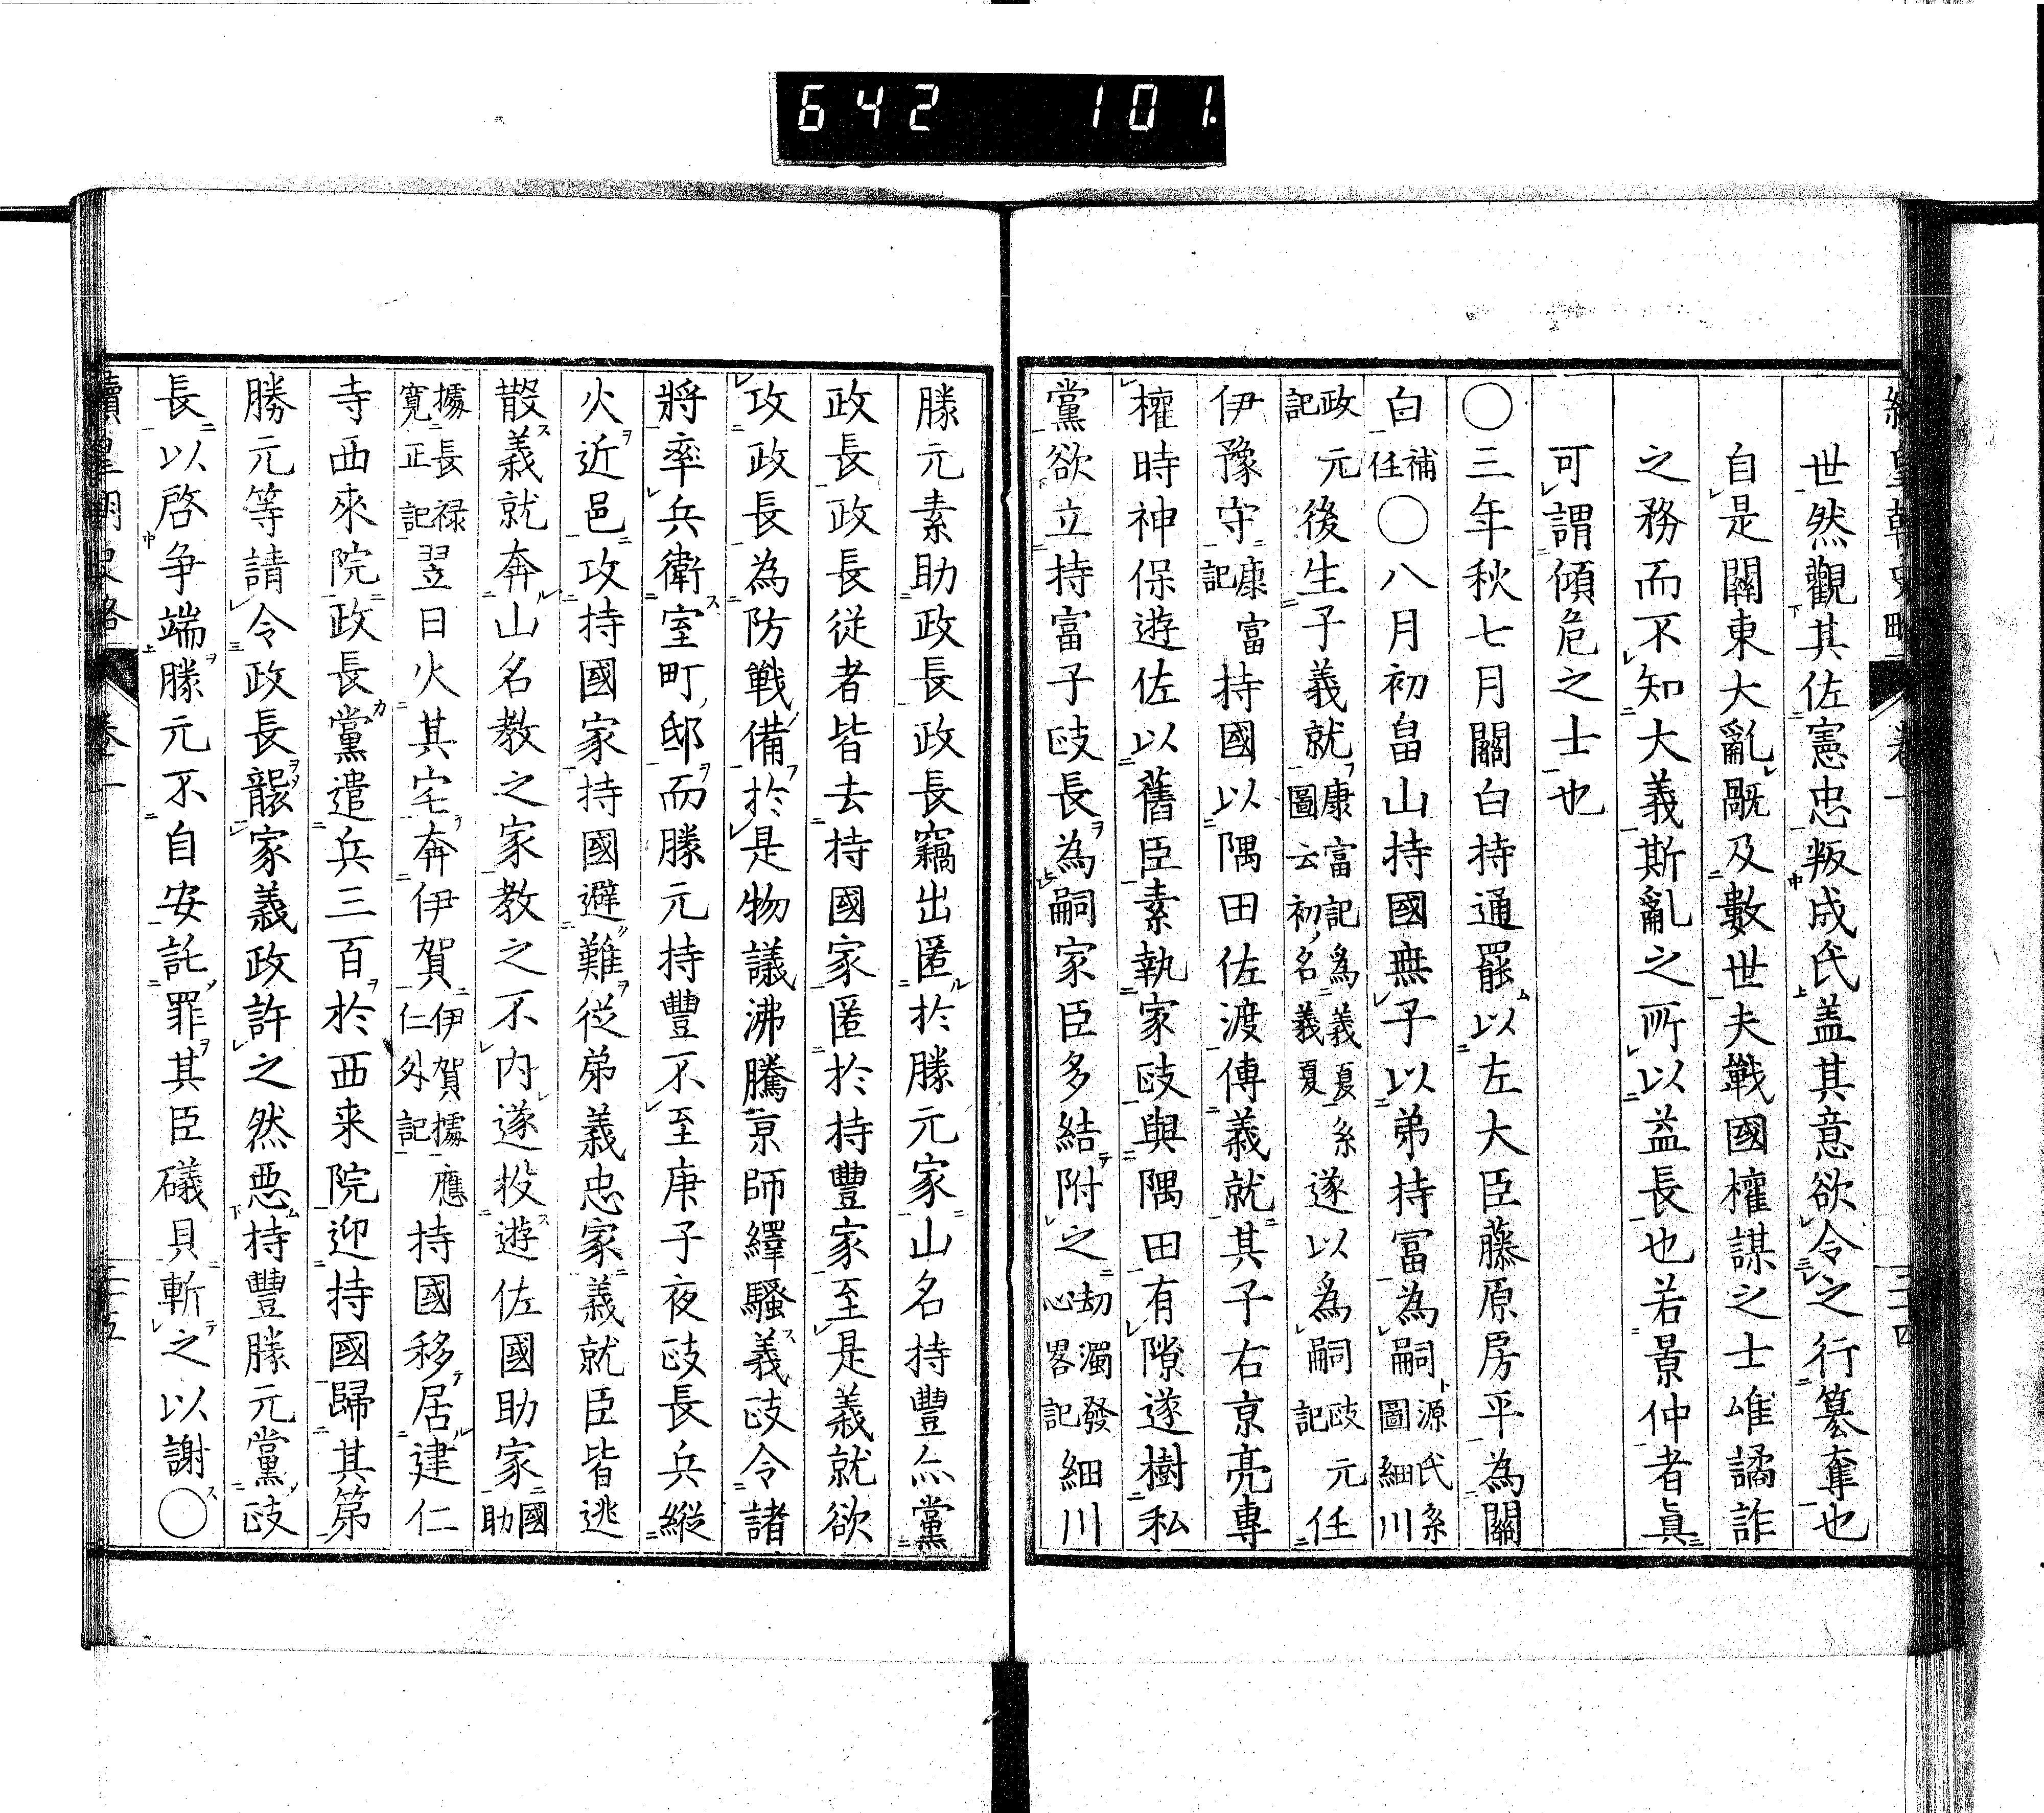 642 101.
續皇朝史略 卷一 三十四
世然觀其佐憲忠叛成氏盖其意欲令之行簒奪也
自是關東大亂暨及數世夫戰國權謀之士唯譎詐
之務而不知大義斯亂之所以益長也若景仲者眞
可謂傾危之士也
○三年秋七月關白持通罷以左大臣藤原房平為關
白補任○八月初畠山持國無子以弟持富為嗣源氏系圖細川
政元記後生子義就康富記為義夏系圖云初名義夏遂以為嗣政元記任
伊豫守康富記持國以隅田佐渡傅義就其子右京亮專
權時神保遊佐以舊臣素執家政與隅田有隙遂樹私
黨欲立持富子政長為嗣家臣多結附之劫濁發心畧記細川
勝元素助政長政長竊出匿於勝元家山名持豐亦黨
政長政長從者皆去持國家匿於持豐家至是義就欲
攻政長為防戰備於是物議沸騰京師繹騷義政令諸
將率兵衛室町邸而勝元持豐不至庚子夜政長兵縱
火近邑攻持國家持國避難從弟義忠家義就臣皆逃
散義就奔山名教之家教之不内遂投遊佐國助家國助
據長禄寬正記翌日火其宅奔伊賀伊賀據應仁外記持國移居建仁
寺西來院政長黨遣兵三百於西来院迎持國歸其第
勝元等請令政長襲家義政許之然惡持豐勝元黨政
長以啓争端勝元不自安託罪其臣礒貝斬之以謝○
續皇朝史略 卷一 三十五